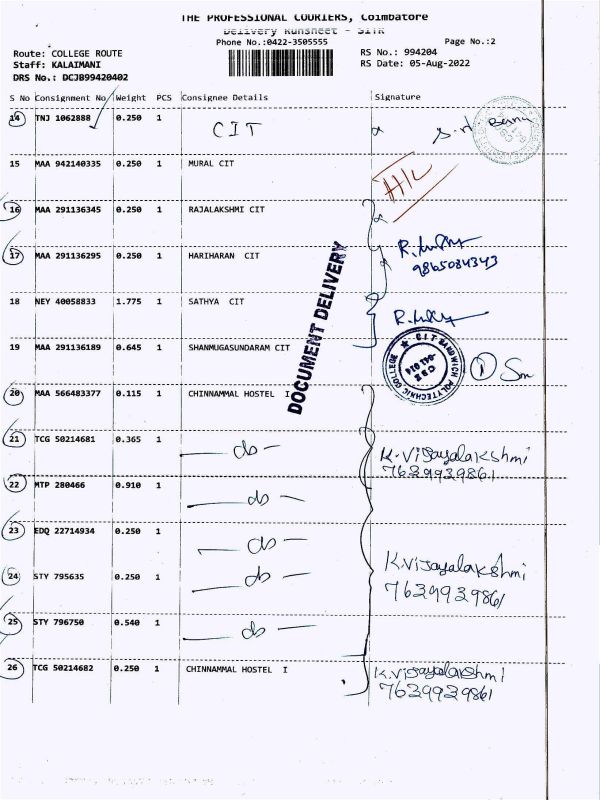 THE PROFESSIONAL COURIERS, Coimbatore
Delivery Runsheet - SITR
Phone No.:0422-3505555 Page No.:2
Route: COLLEGE ROUTE RS No.: 994204
Staff: KALAIMANI RS Date: 05-Aug-2022
DRS No.: DCJB99420402
S No Consignment No Weight PCS Consignee Details Signature
14 TNJ 1062888 0.250 1 CIT
15 MAA 942140335 0.250 1 MURAL CIT
H/L
16 MAA 291136345 0.250 1 RAJALAKSHMI CIT
17 MAA 291136295 0.250 1 HARIHARAN CIT
9865084343
18 NEY 40058833 1.775 1 SATHYA CIT
DOCUMENT DELIVERY
19 MAA 291136189 0.645 1 SHANMUGASUNDARAM CIT
C.I.T SANDWICH POLYTECHNIC COLLEGE
641 014
20 MAA 566483377 0.115 1 CHINNAMMAL HOSTEL I
21 TCG 50214681 0.365 1 — do — K.Vijayalakshmi
7639939861
22 MTP 280466 0.910 1 — do —
23 EDQ 22714934 0.250 1 — do —
K.Vijayalakshmi
24 STY 795635 0.250 1 — do — 7639939861
25 STY 796750 0.540 1 — do —
26 TCG 50214682 0.250 1 CHINNAMMAL HOSTEL I K.Vijayalakshmi
7639939861